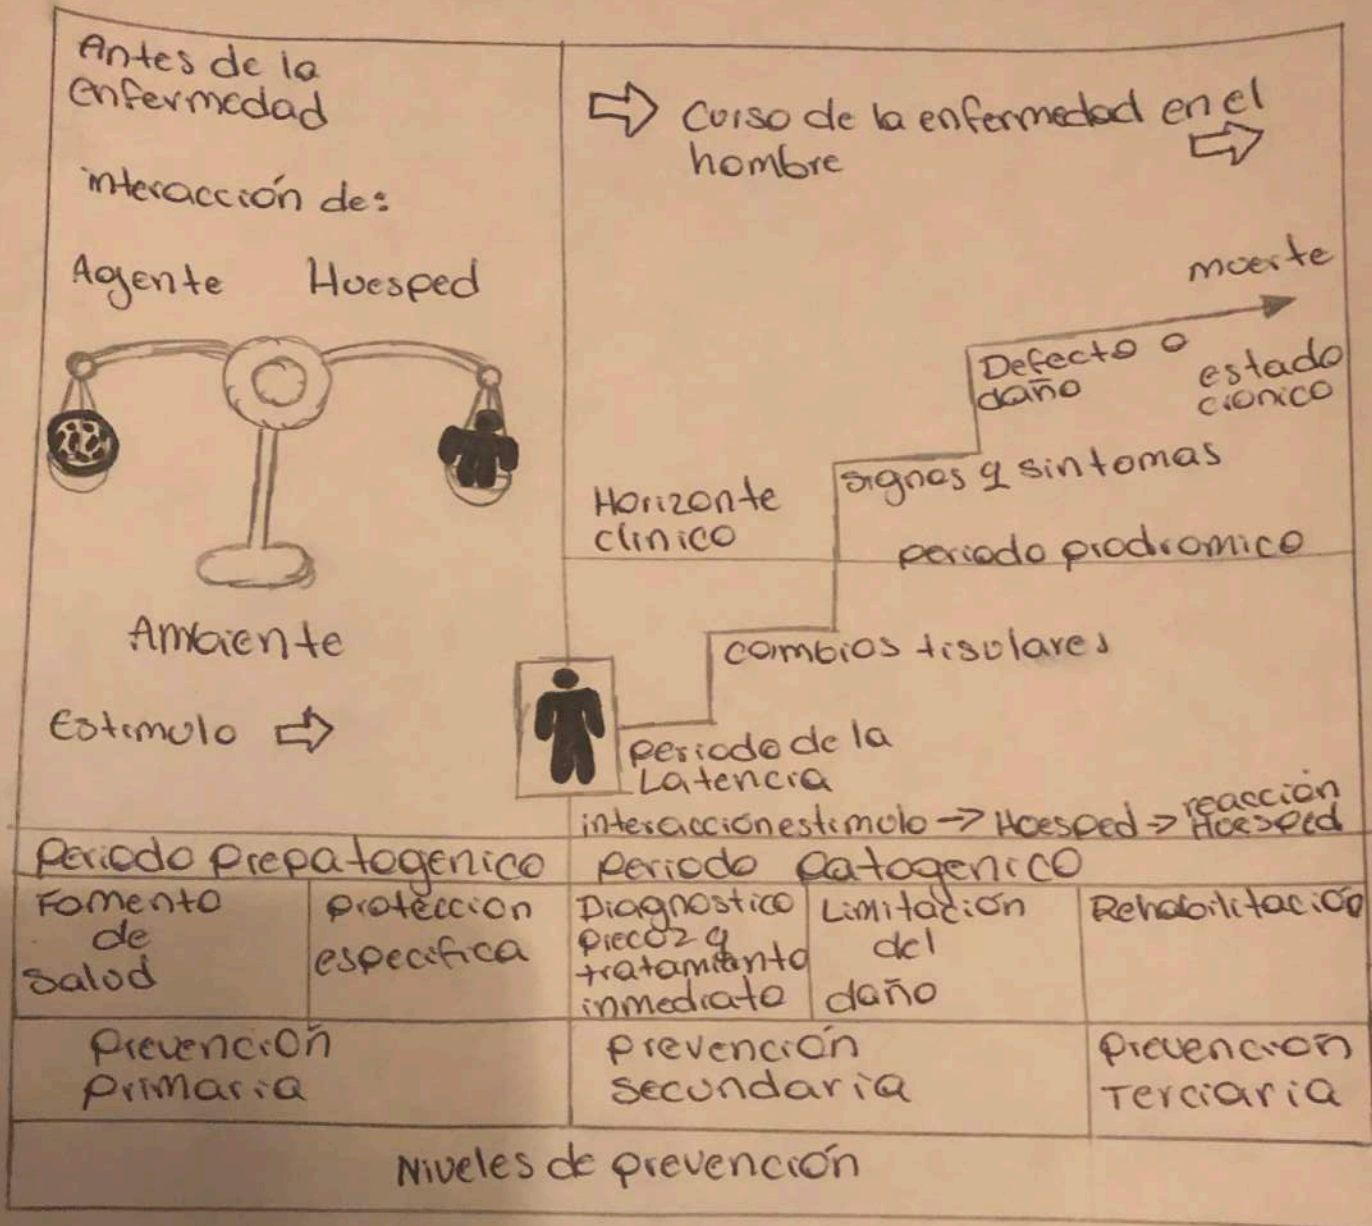 Antes de la
enfermedad
interacción de:
Agente Huesped
Ambiente
Estimulo
Curso de la enfermedad en el
hombre
muerte
Defecto o
daño
estado
cronico
signos y sintomas
Horizonte
clinico
periodo prodromico
cambios tisulares
periodo de la
Latencia
interacción estimulo → Huesped → reacción
Huesped
Periodo Prepatogenico
Periodo Patogenico
Fomento
de
Salud
protección
especifica
Diagnostico
precoz y
tratamianto
inmediato
Limitación
del
daño
Rehabilitación
prevención
primaria
prevención
secundaria
prevención
Terciaria
Niveles de prevención